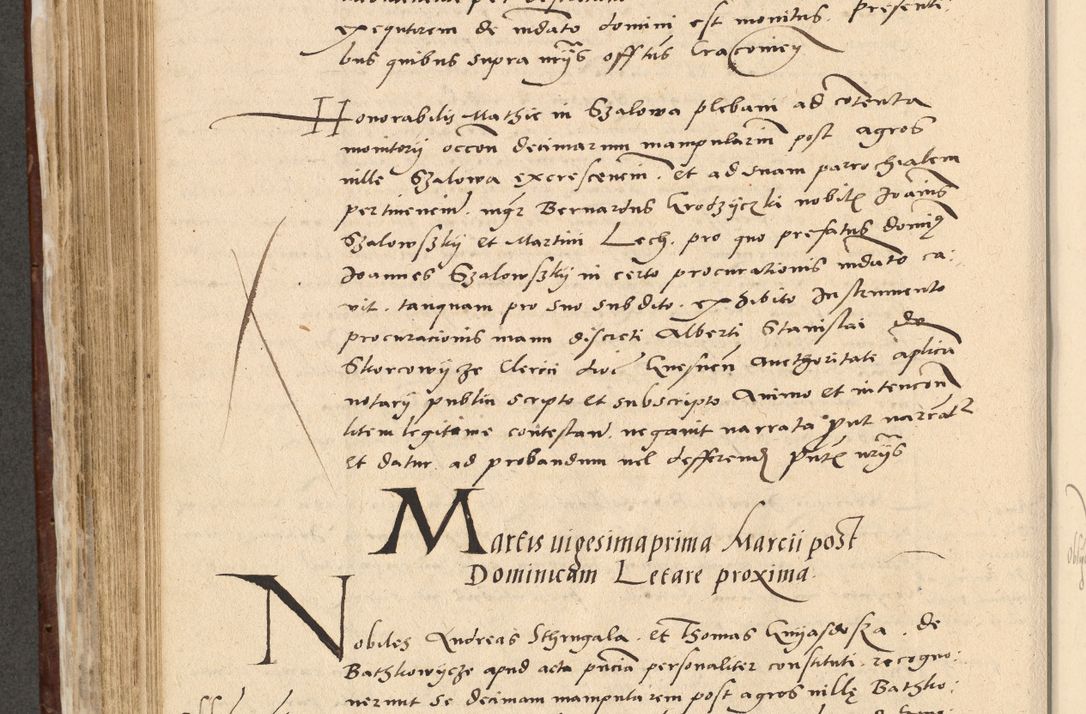 exequtirem de mdato domini est monitus. Presenti
bus quibus supra nrijs offtus Cracowien
Honorabilis Mathie in Szalowa plebani ad cotenta
monitorij occon decimarum manipularium post agros
uille Szalowa excrescencium. et ad suam parrochialem
pertinencium. mgr Bernardus Grodzyczki nobilis Joannis
Szalowszkij et Martini Lech. pro quo prefatus dominus
Joannes Szalowszkij in certo procurationis mdato ca:
uit. tanquam pro suo subdito. exhibito Instrumento
procuracionis manu discreti Alberti Stanislai de
Skorcowijcze Clerici dioc Gnesnen aucthoritate aplica
notarij publici scripto et subscripto Animo et intencon
litem legitime contestan. negauit narrata put narrantur
et datur. ad probandum uel defferend pntibus nrijs
Martis uigesimaprima Marcii post
Dominicam Letare proxima.
Nobiles Andreas Sthrugala. et Thomas Gnijasdsza. de
Bathkowijcze apud acta pncia personaliter constituti. recogno:
uerunt se decimam manipularem post agros uille Bathko: